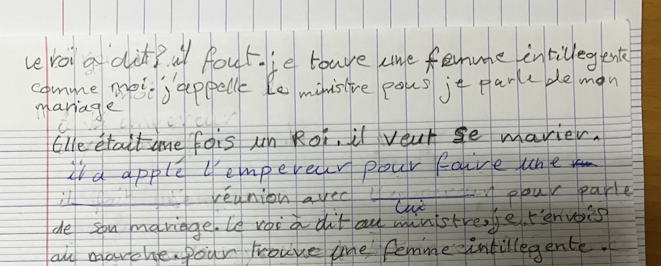 le roi a dit? il fout. je touve une femme intillegente
comme moi. j'appelle le ministre pous je parle de mon
mariage
Elle était une fois un Roi. il veut se marier.
il a applé l'empereur pour faire une
réunion avec lui pour parle
de son mariage. le roi à dit au ministre, je t'envois
au marche. pour trouve une femme intillegente.